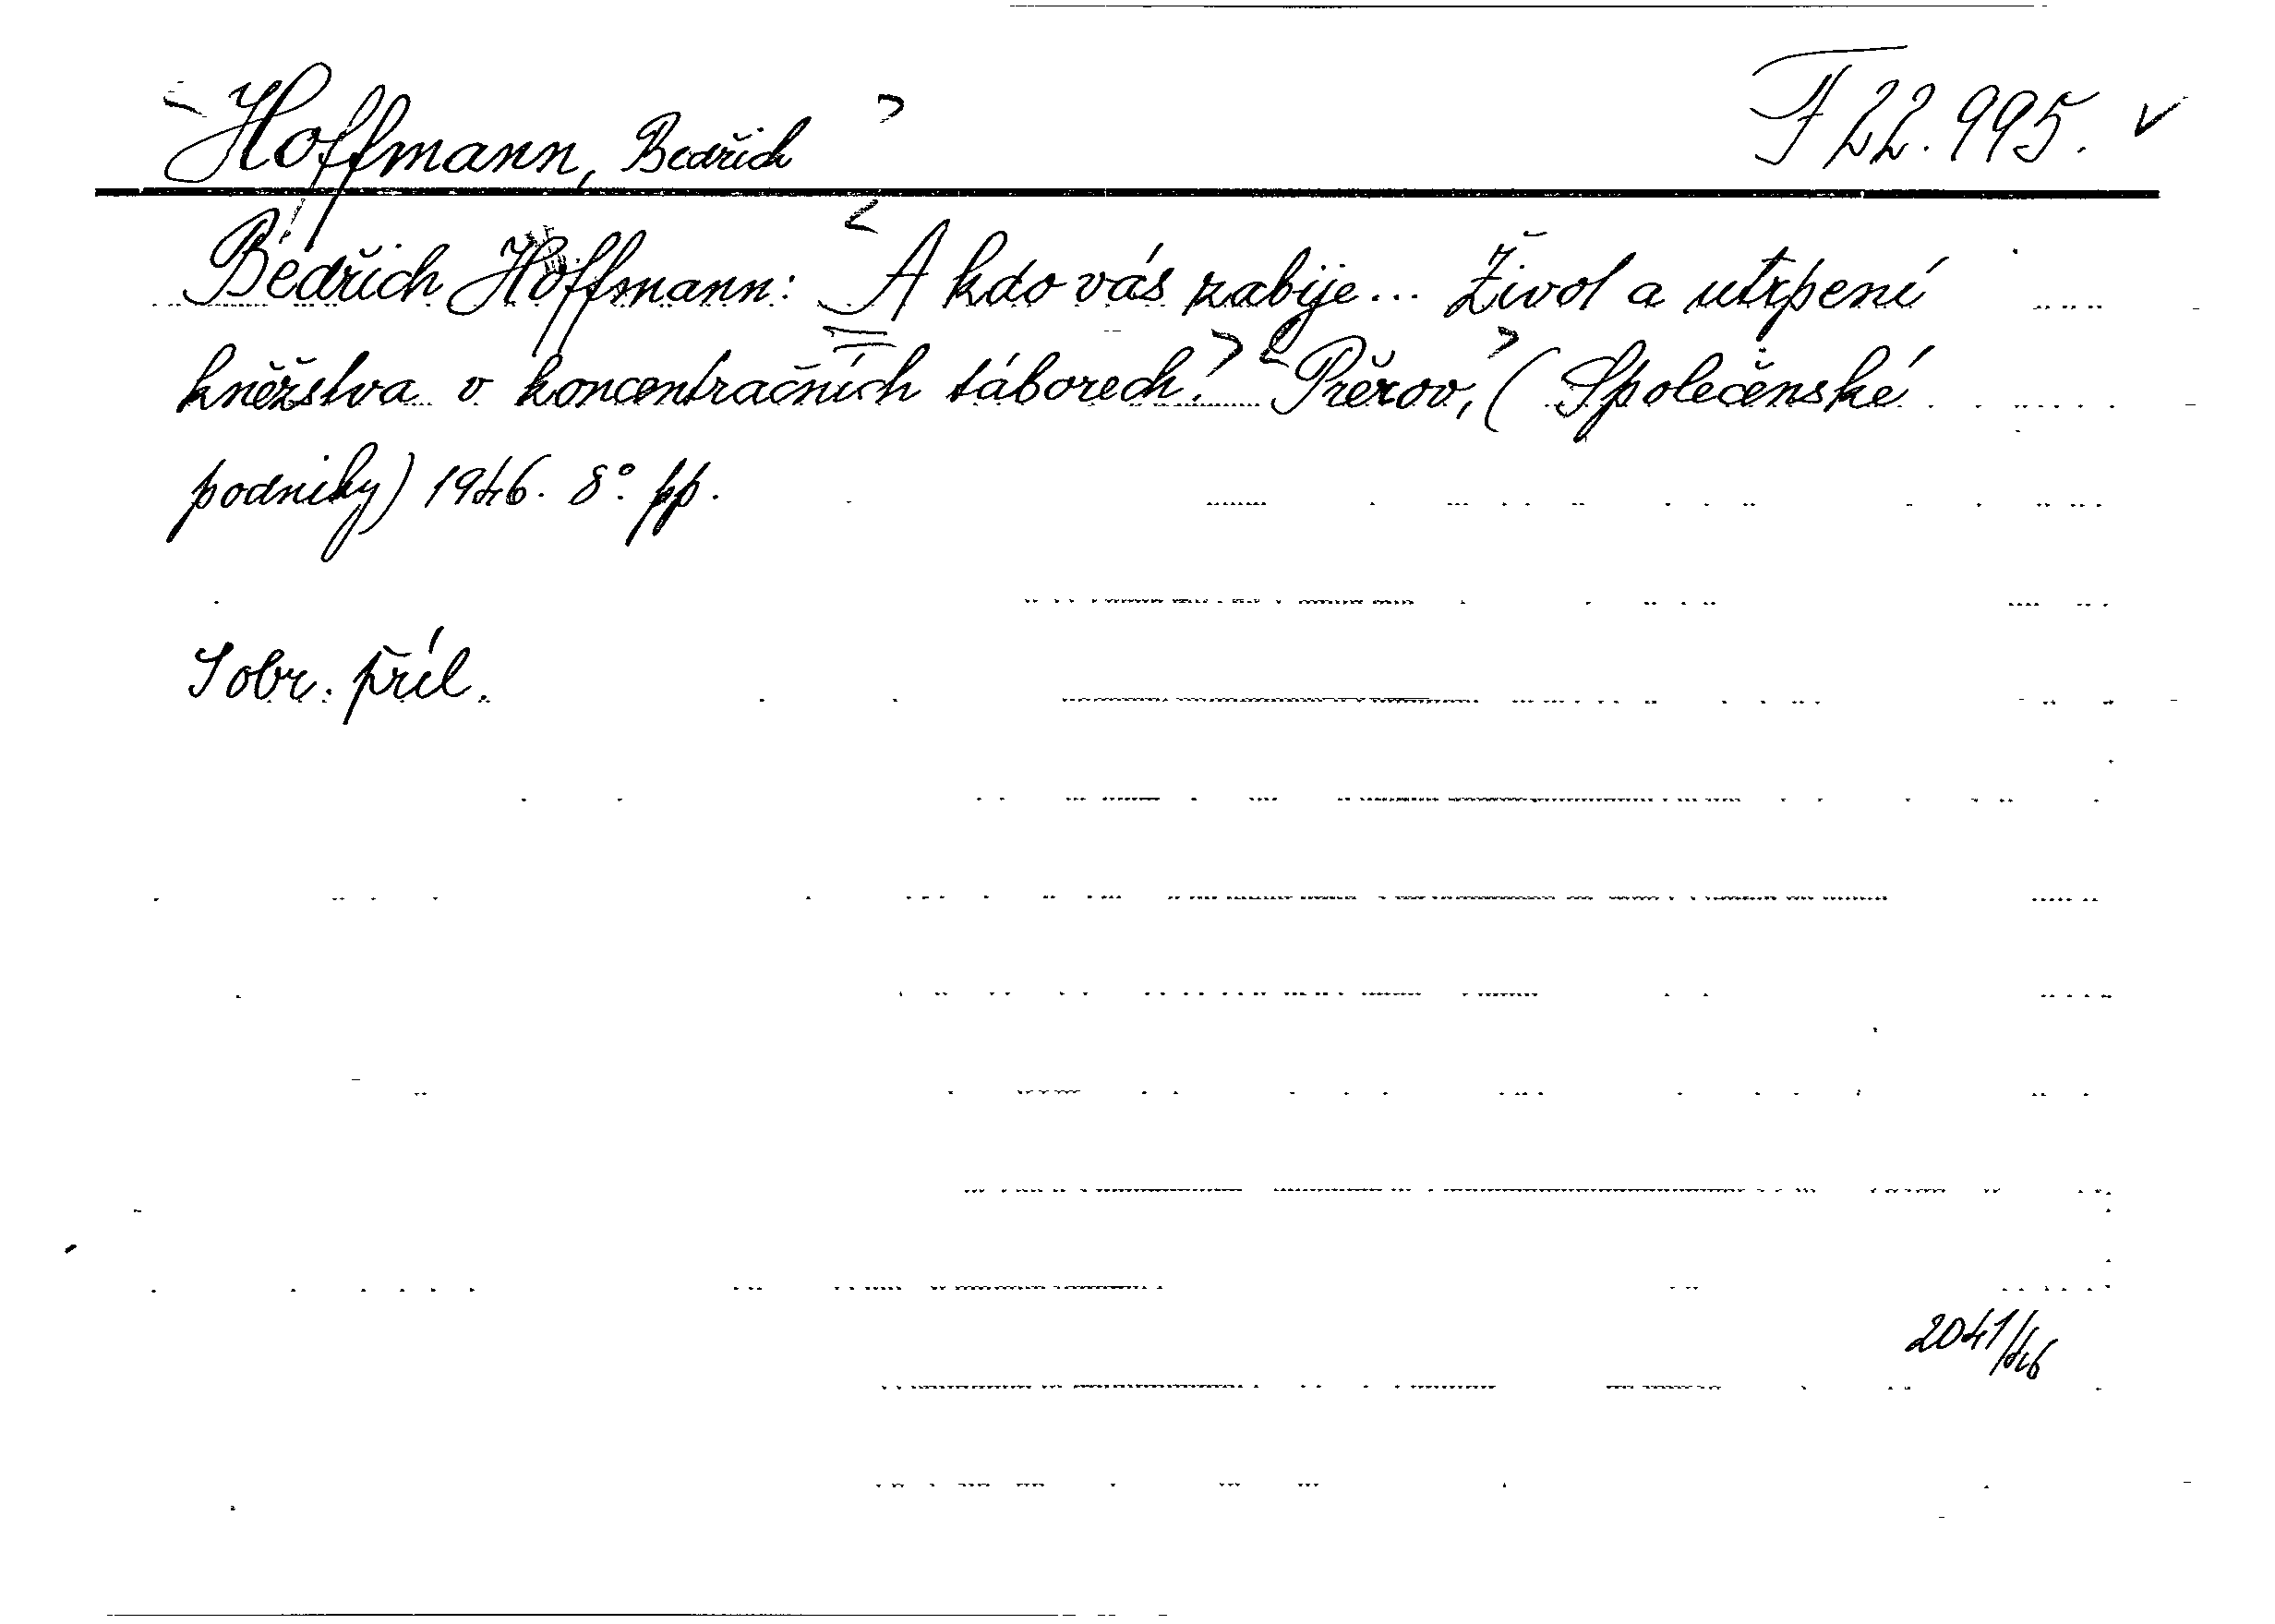 Hoffmann, Bedřich F 22.995. v
Bedřich Hoffmann: A kdo vás zabije... Život a utrpení
kněžstva v koncentračních táborech. Přerov, (Společenské
podniky) 1946. 8°. pp.
S obr. příl.
2041/46